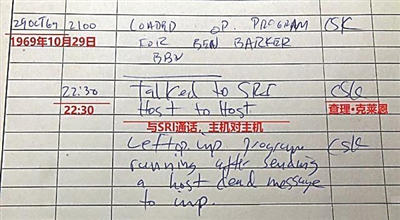 29 OCT 69 2100 LOADED OP. PROGRAM CSK
1969年10月29日 FOR BEN BARKER
BBN
22:30 Talked to SRI CSK
22:30 Host to Host 查理·克莱恩
与SRI通话、主机对主机
Left op imp program CSK
running after sending
a host dead message
to imp.